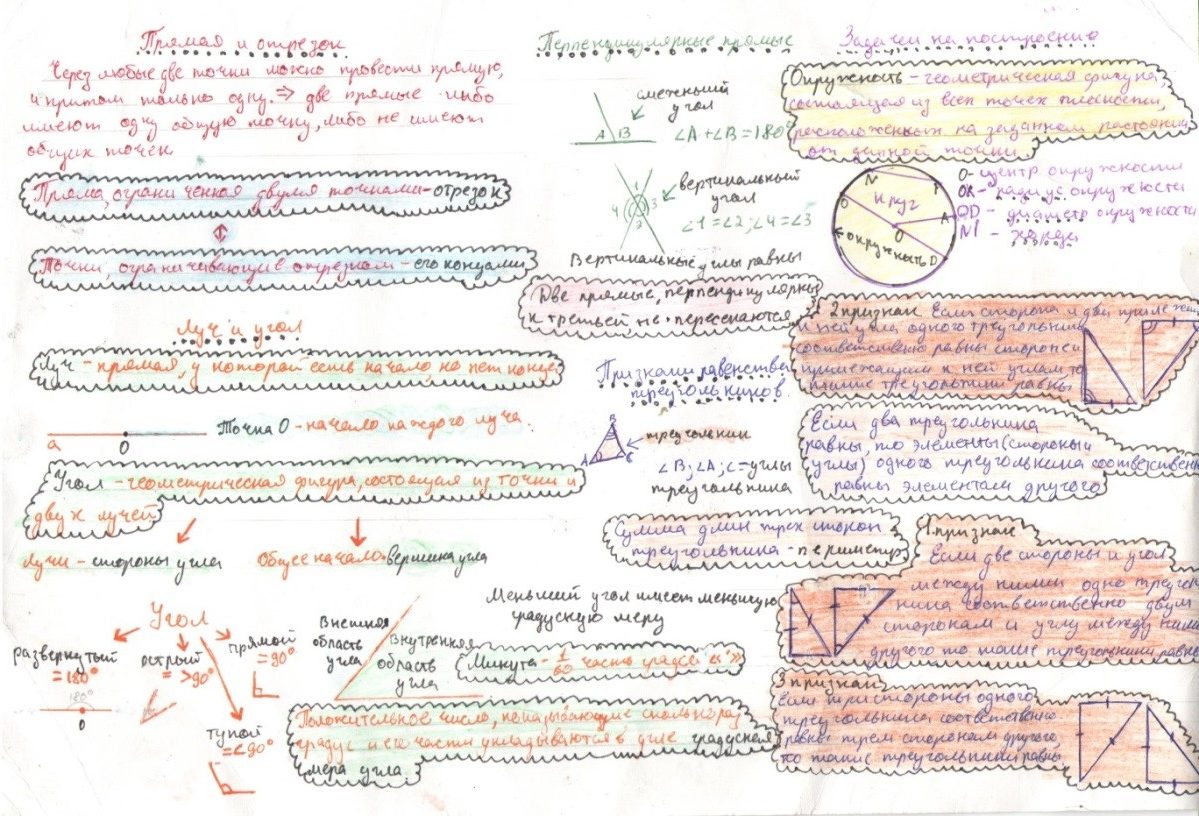 Прямая и отрезок
Через любые две точки можно провести прямую,
и притом только одну. ⇒ две прямые либо
имеют одну общую точку, либо не имеют
общих точек
Пряма, ограниченная двумя точками - отрезок
Точки, ограничивающие отрезком - его концами
Луч и угол
Луч - прямая, у которой есть начало, но нет конца
a
O
Точка O - начало каждого луча.
Угол - геометрическая фигура, состоящая из точки и
двух лучей
Лучи - стороны угла
Общее начало - вершина угла
Угол
развернутый
= 180°
180°
O
острый
= >90°
прямой
= 90°
тупой
= <90°
Внешняя
область
угла
Внутренняя
область
угла
Меньший угол имеет меньшую
градусную меру
Минута - 1/60 часть градуса «'»
Положительное число, показывающие сколько раз
градус и его части укладываются в угле градусная
мера угла
Перпендицулярные прямые
смежный
угол
A B
∠A + ∠B = 180°
1
4 3
2
вертикальный
угол
∠1 = ∠2; ∠4 = ∠3
Вертикальные углы равны
Две прямые, перпендикулярны
к третьей не пересекаются
Признаки равенства
треугольников
B
A C
треугольник
∠B; ∠A; C = углы
треугольника
Сумма длин трех сторон
треугольника - периметр
Задачи на построение
Окружность - геометрическая фигура
состоящая из всех точек плоскости,
расположенных на заданном растоянии
от данной точки.
Круг
O
A
O
D
окружность
O - центр окружности
радиус окружности
диаметр окружности
хорда
2 признак Если сторона и два прилежащ
к ней угла одного треугольника
соответственно равны стороне и
прилежащим к ней углам, то
такие треугольники равны
Если два треугольника
равны, то элементы (стороны и
углы) одного треугольника соответствен
равны элементам другого
1 признак
Если две стороны и угол
между ними одно треуголь
ника соответственно двум
сторонам и углу между ними
другого то такие треугольники равны
3 признак
Если три стороны одного
треугольника соответственно
равны трем сторонам другого,
то такие треугольники равны